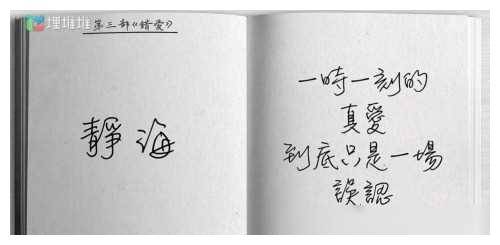 埋堆堆
第三部《錯愛》
靜海
一時一刻的
真愛
到底只是一場
誤認